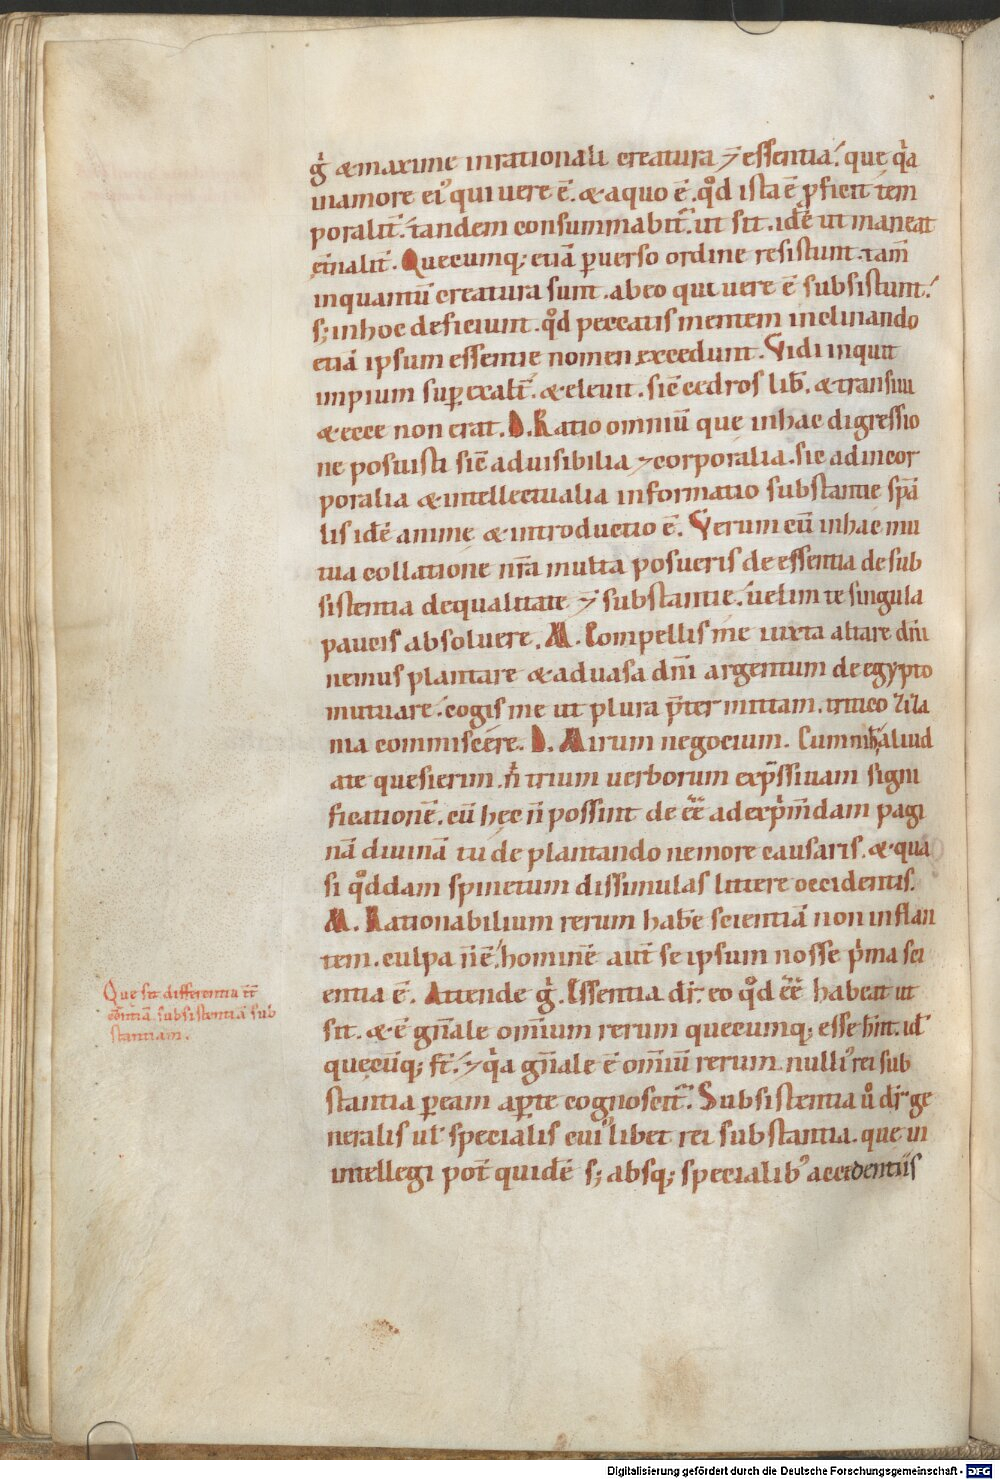 g̍ & maxime inrationali creatura ⁊ essentia. que q̍a
inamore ei᾽ qui vere ē. & aquo ē. qd̊ ista ē ꝓficit tem
poralit̄. tandem consummabit᷑. ut sit. idē ut maneat
et̄nalit̄. Quecumq; etiā ꝑverso ordine resistunt. tam̄
inquantū creatura sunt. abeo qui vere ē subsistunt.
s; inhoc deficiunt. qd̊ peccatis mentem inclinando
etiā ipsum essentie nomen excedunt. Vidi inquit
impium suꝑexalt̄. & elevit. sic̄ cedros lib̄. & transivi
& ecce non erat. D. Ratio omniū que inhac digressio
ne posuisti sic̄ advisibilia ⁊ corporalia. sic adincor
poralia & intellectualia informatio substantie sp̄a
lis idē anime & introductio ē. Verum cū inhac mu
tua collatione nr̄a multa posueris de essentia de sub
sistentia dequalitate ⁊ substantie. velim te singula
paucis absolvere. M. Compellis me iuxta altare dn̄i
nemus plantare & advasa dn̄i argentum de egypto
mutuare. cogis me ut plura p̄termittam. tritico zıza
nia commiscere. D. Mirum negocium. Cum nih̄ aliud
ate quesierim. n̍ trium verborum exp̄ssivam signi
ficationē. cū hec n̄ possint de ēē adexp̍mēdam pagi
nā divinā tu de plantando nemore causaris. & qua
si qd̊dam spinetum dissimulas littere occidentis.
M. Rationabilium rerum habe scientiā non inflan
tem. culpa n̄ ē. hominē aut̄ se ipsum nosse p̍ma sci
entia ē. Attende g̍. Essentia dr̄. eo qd̊ ēē habeat ut
sit. & ē gn̄ale omnium rerum quecumq; esse hn̄t. id᷑
quecūq; st̄. ⁊ q̍a gn̄ale ē omniū rerum. nulli᾽ rei sub
stantia ꝑeam aꝑte cognoscit᷑. Subsistentia v̊ dr̄ ge
neralis ul᷑ specialis cui᾽libet rei substantia. que ui
intellegi pot̄ quidē s; absq; specialib᾽ accidentiis
Que sit differentia int̄
eēntiā. subsistentiā sub
stantiam.
Digitalisierung gefördert durch die Deutsche Forschungsgemeinschaft - DFG